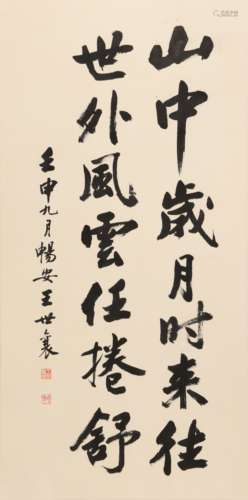 山中歲月时来往
世外風雲任捲舒
壬申九月暢安王世襄